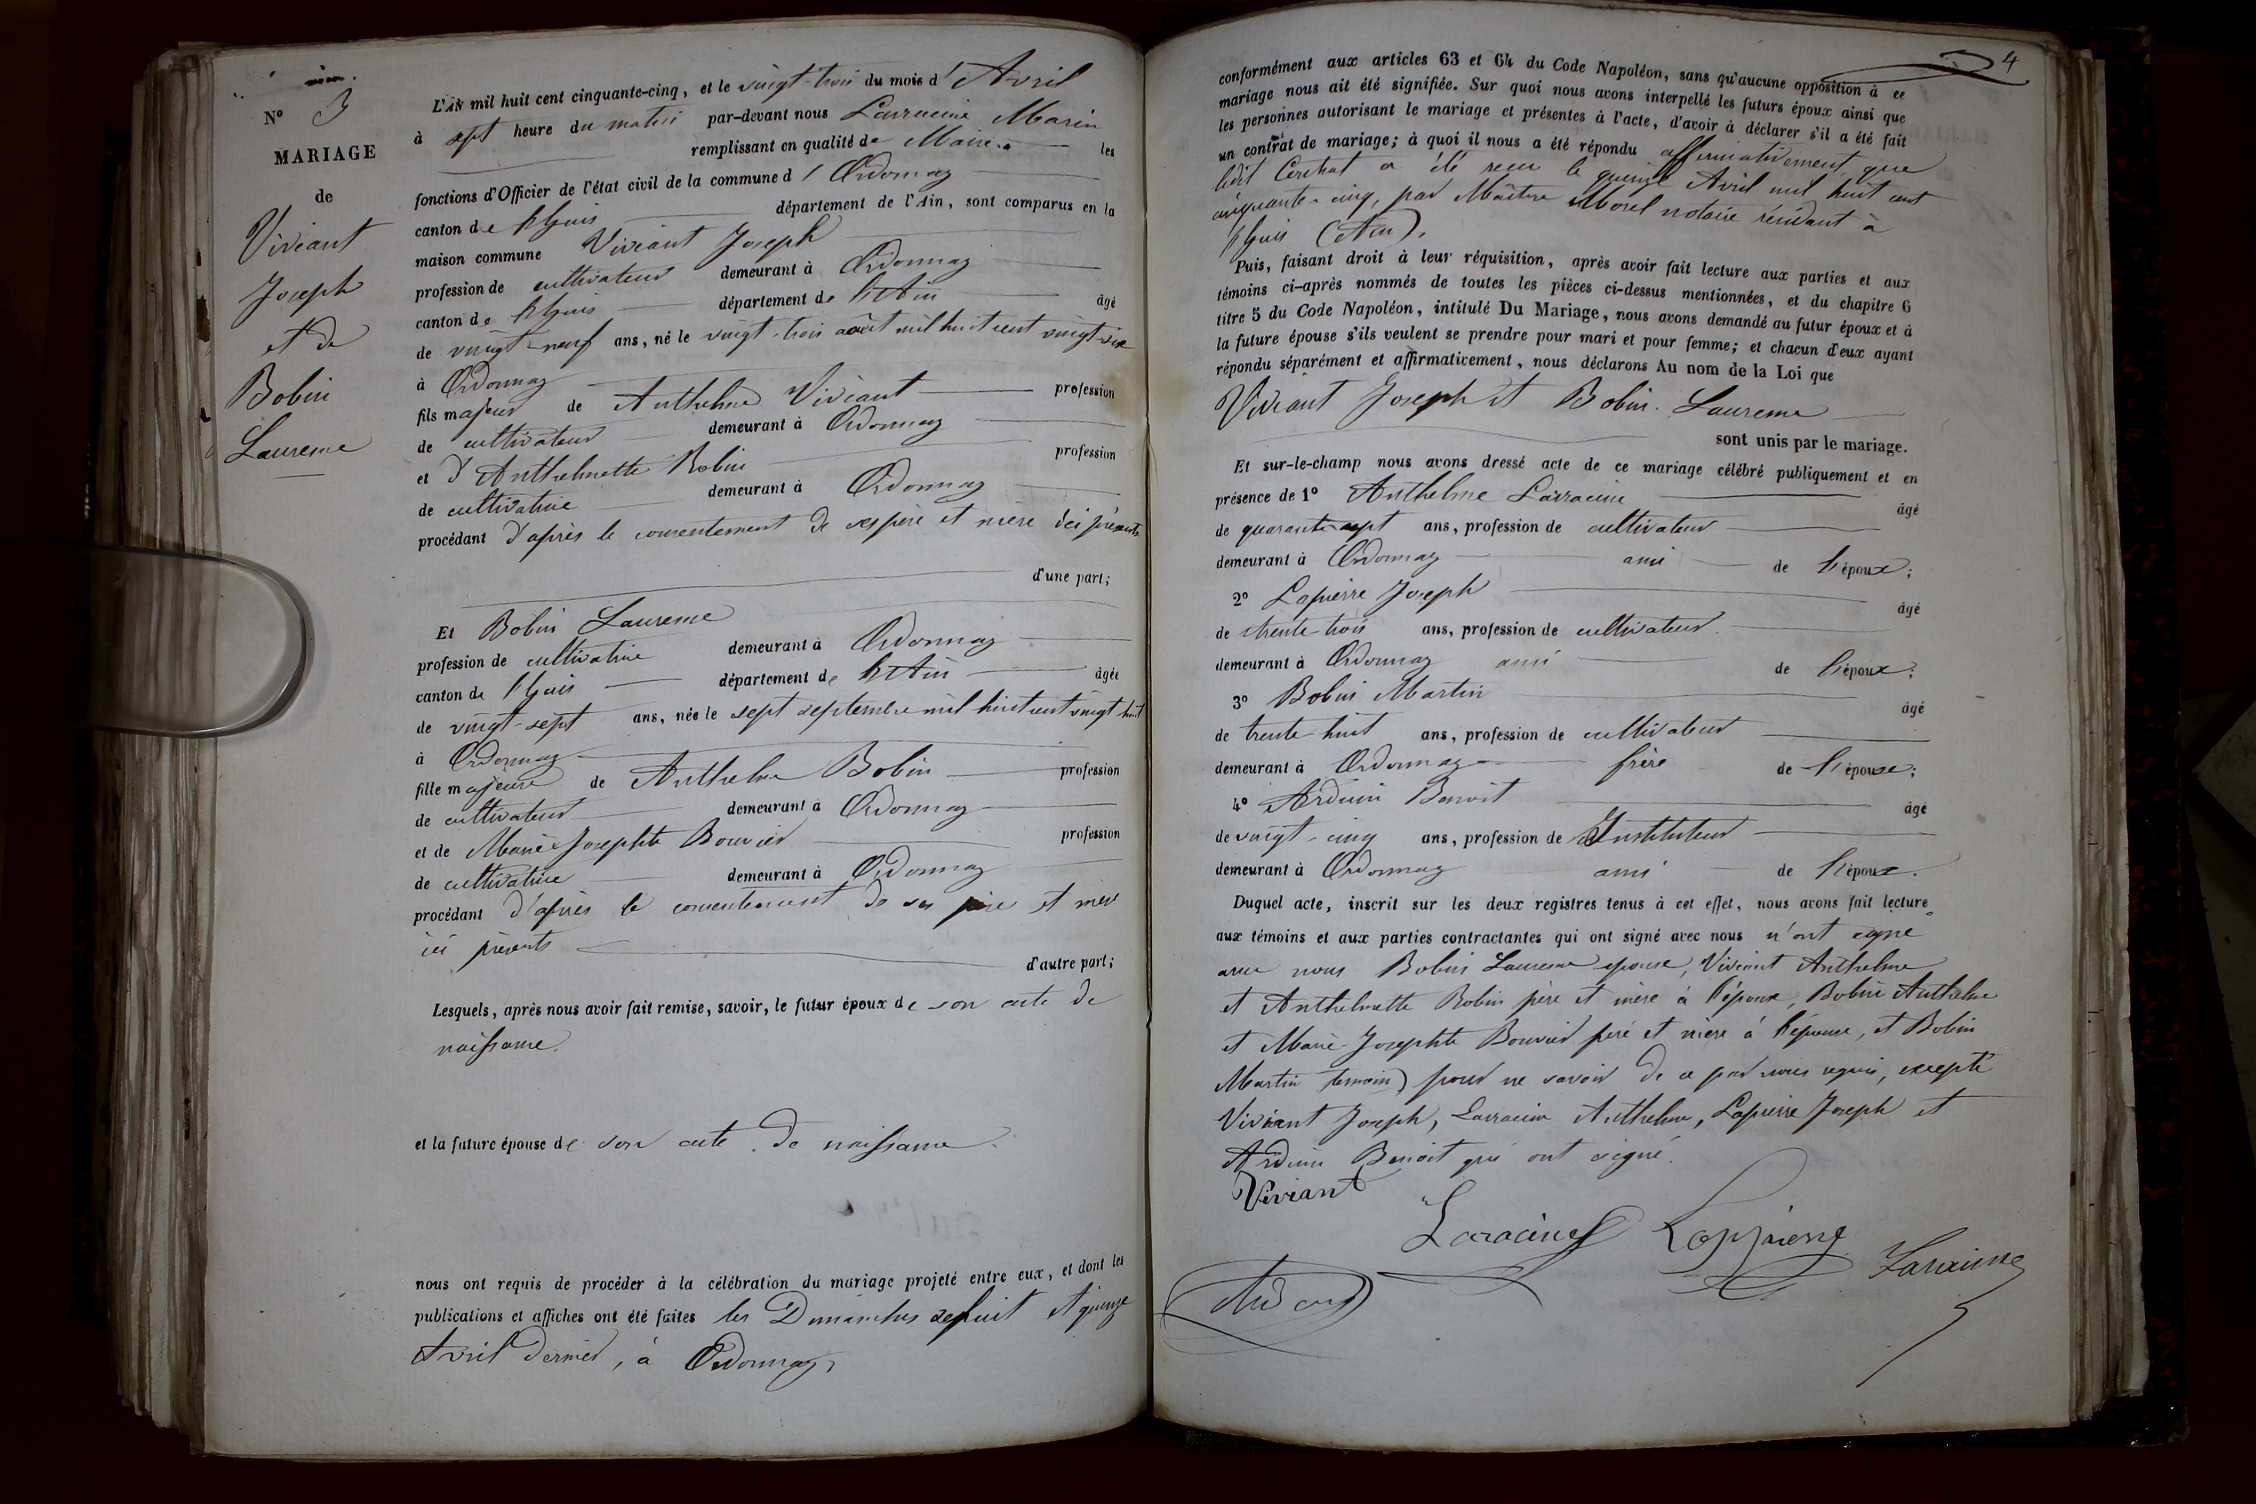 N° 3
MARIAGE
de
Viviant
Joseph
et de
Bobin
Laurence
L'AN mil huit cent cinquante-cinq, et le vingt-trois du mois d'Avril
à sept heure du matin par-devant nous Larracine Marin
remplissant en qualité de Maire les
fonctions d'Officier de l'état civil de la commune d'Ordonnaz
canton de lhuis département de l'Ain, sont comparus en la
maison commune Viviant Joseph
profession de cultivateur demeurant à Ordonnaz
canton de lhuis département de l'Ain âgé
de vingt-neuf ans, né le vingt-trois août mil huit cent vingt-six
à Ordonnaz
fils majeur de Anthelme Viviant profession
de cultivateur demeurant à Ordonnaz
et d'Anthelmette Robin profession
de cultivatrice demeurant à Ordonnaz
procédant d'après le consentement de ses père et mère ici présents
d'une part;
Et Bobin Laurence
profession de cultivatrice demeurant à Ordonnaz
canton de lhuis département de l'Ain âgée
de vingt-sept ans, née le sept septembre mil huit cent vingt-huit
à Ordonnaz
fille majeure de Anthelme Bobin profession
de cultivateur demeurant à Ordonnaz
et de Marie-Josephte Bouvier profession
de cultivatrice demeurant à Ordonnaz
procédant d'après le consentement de ses père et mère
ici présents
d'autre part;
Lesquels, après nous avoir fait remise, savoir, le futur époux de son acte de
naissance.
et la future épouse de son acte de naissance.
nous ont requis de procéder à la célébration du mariage projeté entre eux, et dont les
publications et affiches ont été faites les Dimanches et quinze
Avril dernier, à Ordonnaz,
4
conformément aux articles 63 et 64 du Code Napoléon, sans qu'aucune opposition à ce
mariage nous ait été signifiée. Sur quoi nous avons interpellé les futurs époux ainsi que
les personnes autorisant le mariage et présentes à l'acte, d'avoir à déclarer s'il a été fait
un contrat de mariage; à quoi il nous a été répondu affirmativement, que
ledit Contrat a été reçu le quinze Avril mil huit cent
cinquante-cinq, par Maître Morel notaire résidant à
lhuis (Ain).
Puis, faisant droit à leur réquisition, après avoir fait lecture aux parties et aux
témoins ci-après nommés de toutes les pièces ci-dessus mentionnées, et du chapitre 6
titre 5 du Code Napoléon, intitulé Du Mariage, nous avons demandé au futur époux et à
la future épouse s'ils veulent se prendre pour mari et pour femme; et chacun d'eux ayant
répondu séparément et affirmativement, nous déclarons Au nom de la Loi que
Viviant Joseph et Bobin Laurence
sont unis par le mariage.
Et sur-le-champ nous avons dressé acte de ce mariage célébré publiquement et en
présence de 1° Anthelme Larracine âgé
de quarante-sept ans, profession de cultivateur
demeurant à Ordonnaz ami de l'époux;
2° Lapierre Joseph âgé
de trente-trois ans, profession de cultivateur
demeurant à Ordonnaz ami de l'époux;
3° Bobin Martin âgé
de trente-huit ans, profession de cultivateur
demeurant à Ordonnaz frère de l'épouse;
4° Arduin Benoit âgé
de vingt-cinq ans, profession de Instituteur
demeurant à Ordonnaz ami de l'époux.
Duquel acte, inscrit sur les deux registres tenus à cet effet, nous avons fait lecture
aux témoins et aux parties contractantes qui ont signé avec nous n'ont signé
avec nous Bobin Laurence épouse, Viviant Anthelme
et Anthelmette Robin père et mère à l'époux, Bobin Anthelme
et Marie-Josephte Bouvier père et mère à l'épouse, et Bobin
Martin témoin) pour ne savoir de ce par nous requis, excepté
Viviant Joseph, Larracine Anthelme, Lapierre Joseph et
Arduin Benoit qui ont signé.
Viviant
Laracine Lappierre Laracine
Arduin